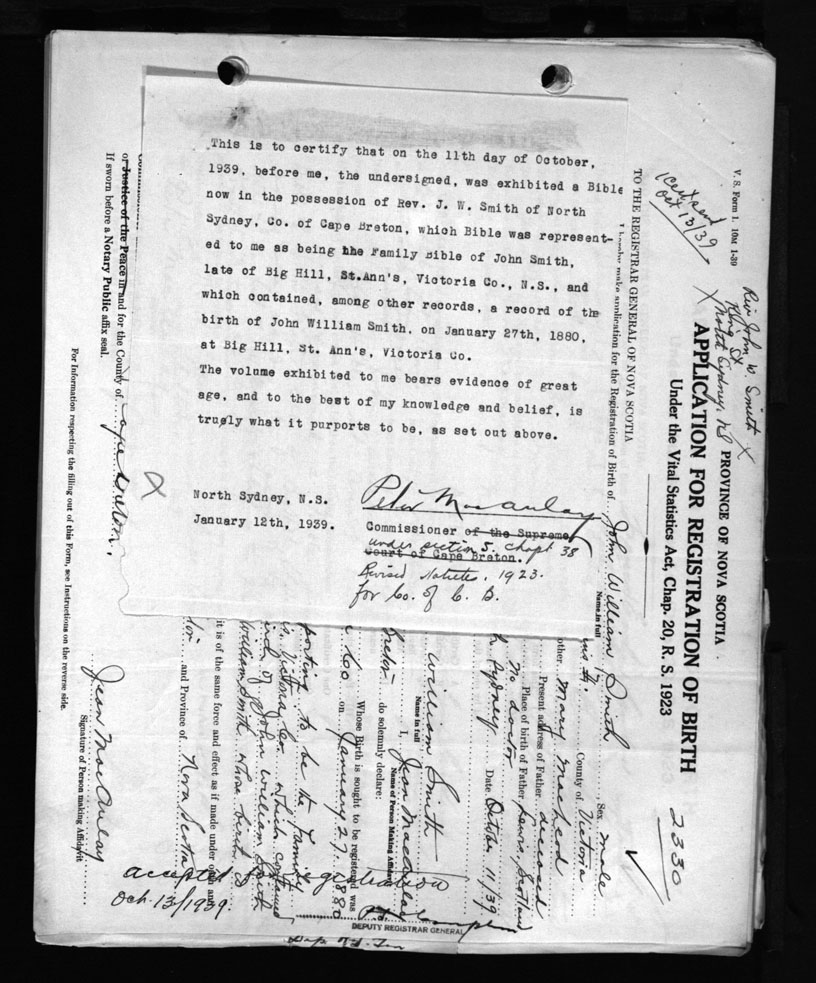 This is to certify that on the 11th day of October,
1939, before me, the undersigned, was exhibited a Bible
now in the possession of Rev. J. W. Smith of North
Sydney, Co. of Cape Breton, which Bible was represent-
ed to me as being the Family Bible of John Smith,
late of Big Hill, St.Ann's, Victoria Co., N.S., and
which contained, among other records, a record of the
birth of John William Smith, on January 27th, 1880,
at Big Hill, St. Ann's, Victoria Co.
The volume exhibited to me bears evidence of great
age, and to the best of my knowledge and belief, is
truely what it purports to be, as set out above.
North Sydney, N.S.
January 12th, 1939.
Peter Macaulay
Commissioner of the Supreme
under section 5. Chapt 38
Court of Cape Breton.
Revised Statutes. 1923.
for Co. of C. B.
V. S. Form 1. 10M 1-39
Oct 13/39
Rev John W Smith X
King St
North Sydney, NS
X
PROVINCE OF NOVA SCOTIA
APPLICATION FOR REGISTRATION OF BIRTH
Under the Vital Statistics Act, Chap. 20, R. S. 1923
2330
TO THE REGISTRAR GENERAL OF NOVA SCOTIA
make application for the Registration of Birth of John William Smith Sex male
Name in full
County of Victoria
Mary MacLeod
Present address of Father deceased
Place of birth of Father Scotland
No doctor
Sydney Date October 11/39
William Smith
Name in full
I, Jean MacAulay
Name of Person Making Affidavit
Breton do solemnly declare:
Whose Birth is sought to be registered was
on January 27, 1880
porting to be the Family
Victoria Co which contained
of John William Smith
William Smith whose birth
it is of the same force and effect as if made under oath and
and Province of Nova Scotia
Jean MacAulay
Signature of Person making Affidavit
or Justice of the Peace in and for the County of Cape Breton.
If sworn before a Notary Public affix seal.
For Information respecting the filling out of this Form, see Instructions on the reverse side.
X
accepted for registration
Oct. 13/1939.
DEPUTY REGISTRAR GENERAL